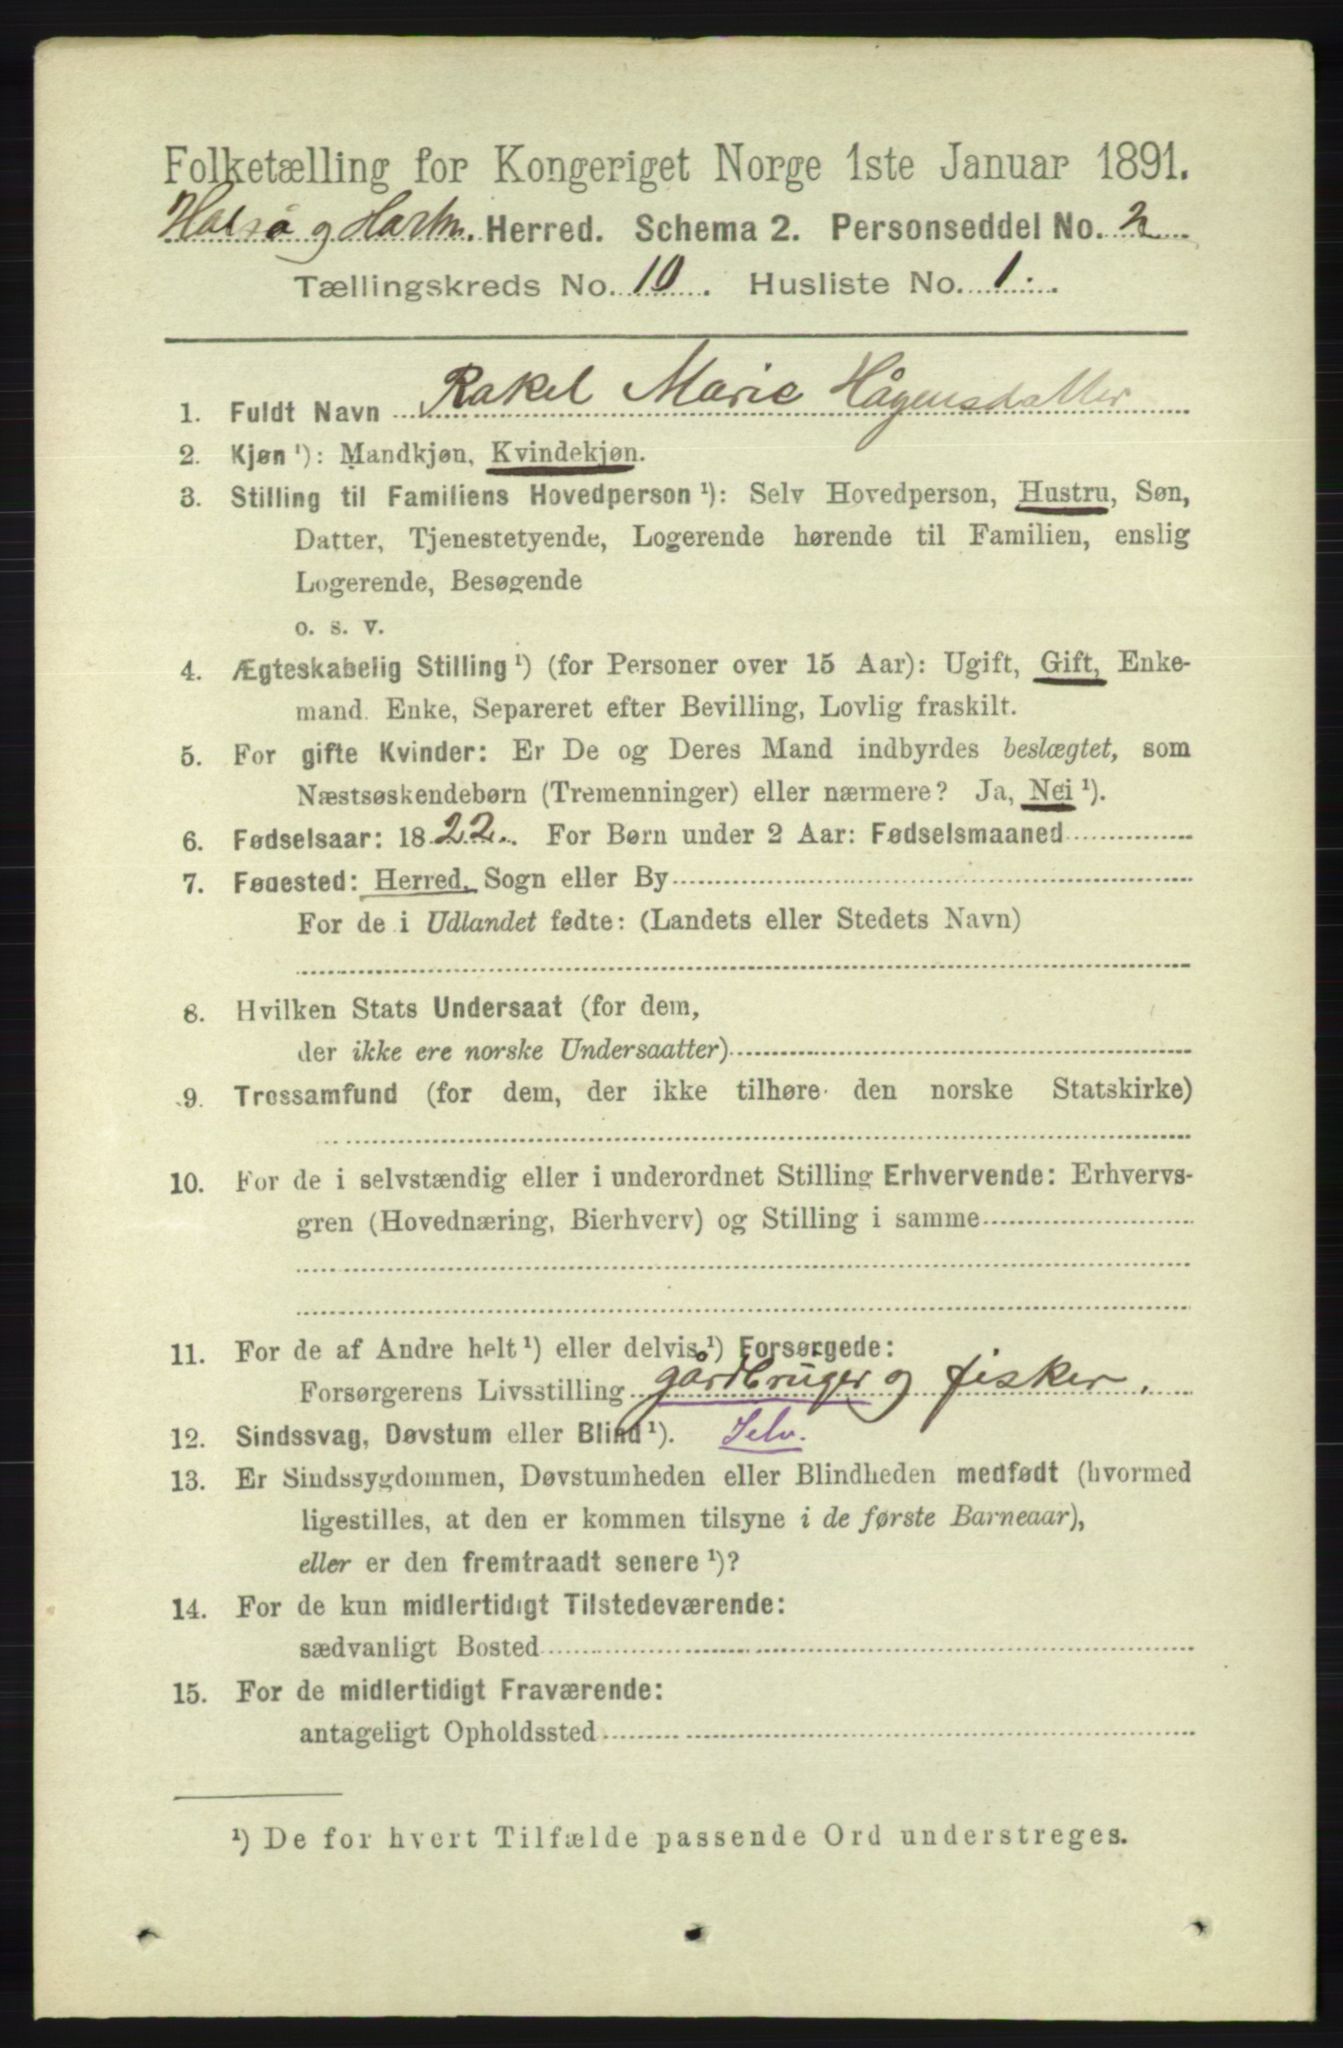 Folketælling for Kongeriget Norge 1ste Januar 1891.
Halsø og Hartm. Herred. Schema 2. Personseddel No. 2
Tællingskreds No. 10. Husliste No. 1.
1. Fuldt Navn Rakel Marie Hågensdatter
2. Kjøn ¹): Mandkjøn, Kvindekjøn.
3. Stilling til Familiens Hovedperson ¹): Selv Hovedperson, Hustru, Søn,
Datter, Tjenestetyende, Logerende hørende til Familien, enslig
Logerende, Besøgende
o. s. v.
4. Ægteskabelig Stilling ¹) (for Personer over 15 Aar): Ugift, Gift, Enke-
mand. Enke, Separeret efter Bevilling, Lovlig fraskilt.
5. For gifte Kvinder: Er De og Deres Mand indbyrdes beslægtet, som
Næstsøskendebørn (Tremenninger) eller nærmere? Ja, Nei ¹).
6. Fødselsaar: 1822. For Børn under 2 Aar: Fødselsmaaned
7. Føuested: Herred, Sogn eller By
For de i Udlandet fødte: (Landets eller Stedets Navn)
8. Hvilken Stats Undersaat (for dem,
der ikke ere norske Undersaatter)
9. Trossamfund (for dem, der ikke tilhøre den norske Statskirke)
10. For de i selvstændig eller i underordnet Stilling Erhvervende: Erhvervs-
gren (Hovednæring, Bierhverv) og Stilling i samme
11. For de af Andre helt ¹) eller delvis ¹) Forsørgede:
Forsørgerens Livsstilling gårdbruger og fisker.
12. Sindssvag, Døvstum eller Blind ¹). Selv.
13. Er Sindssygdommen, Døvstumheden eller Blindheden medfødt (hvormed
ligestilles, at den er kommen tilsyne i de første Barneaar),
eller er den fremtraadt senere ¹)?
14. For de kun midlertidigt Tilstedeværende:
sædvanligt Bosted
15. For de midlertidigt Fraværende:
antageligt Opholdssted
¹) De for hvert Tilfælde passende Ord understreges.